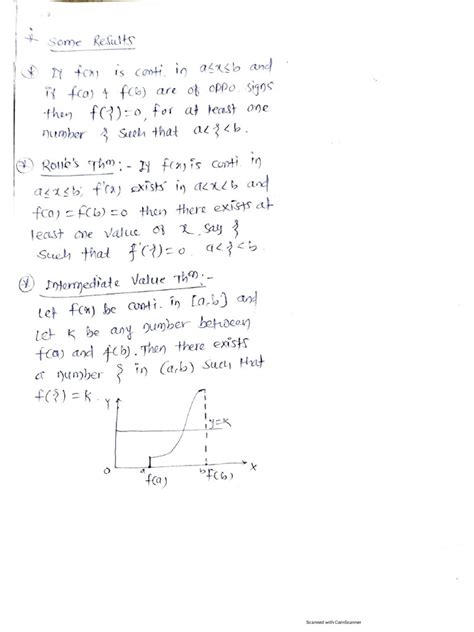 * Some Results
* If f(x) is conti. in a≤x≤b and
if f(a) & f(b) are of oppo. signs
then f(ξ)=0, for at least one
number ξ such that a<ξ<b.
* Rolle's Thm :- If f(x) is conti. in
a≤x≤b, f'(x) exists in a<x<b and
f(a) = f(b) = 0 then there exists at
least one value of x, say ξ
such that f'(ξ)=0, a<ξ<b.
* Intermediate Value Thm :-
Let f(x) be conti. in [a,b] and
let K be any number between
f(a) and f(b). Then there exists
a number ξ in (a,b) such that
f(ξ) = K.
Y
y=K
O a b X
f(a) f(b)
Scanned with CamScanner